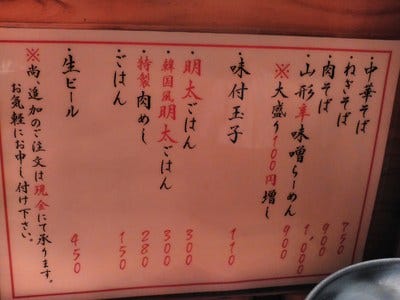 ・中華そば 750
・ねぎそば 900
・肉そば 1,000
・山形辛味噌らーめん 900
※大盛り100円増し
・味付玉子 110
・明太ごはん 300
・韓国風明太ごはん 300
・特製肉めし 280
・ごはん 150
・生ビール 450
※尚、追加のご注文は現金にて承ります。
お気軽にお申し付け下さい。